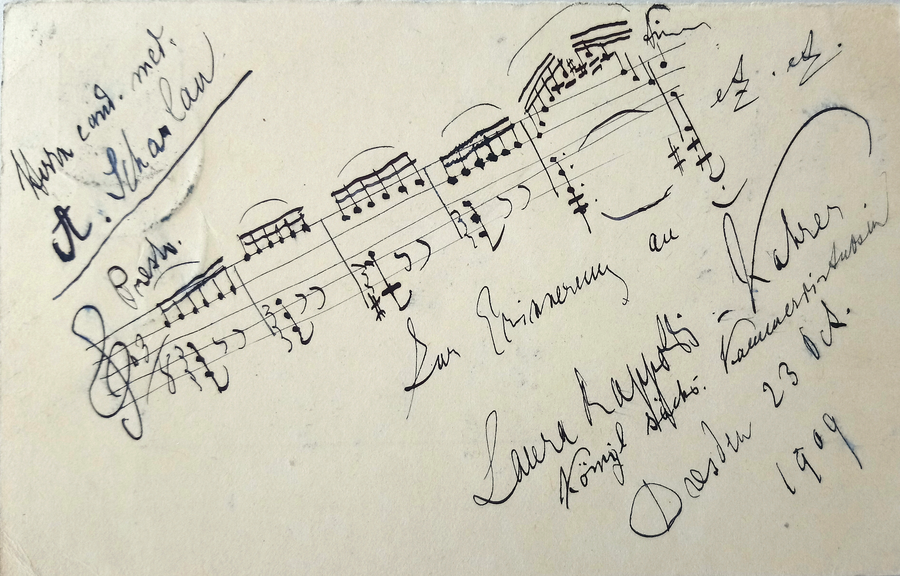 Herrn cand. med.
A. Scharlau
Presto.
etz. etz.
Zur Erinnerung an
Laura Rappoldi-Kahrer
Königl Sächs. Kammervirtuosin
Dresden 23 Oct.
1909